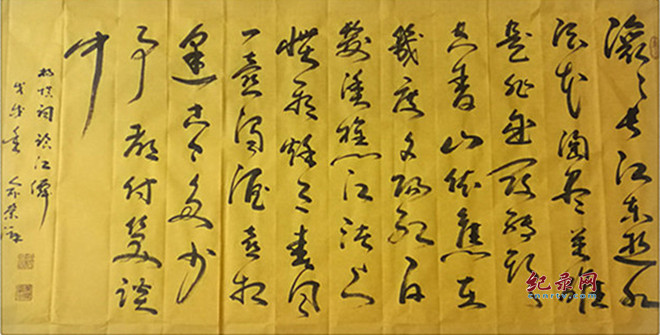 滚滚长江东逝水
浪花淘尽英雄
是非成败转头
空青山依旧在
几度夕阳红白
发渔樵江渚上
惯看秋月春风
一壶浊酒喜相
逢古今多少
事都付笑谈
中
杨慎词临江
戊戌
纪录网